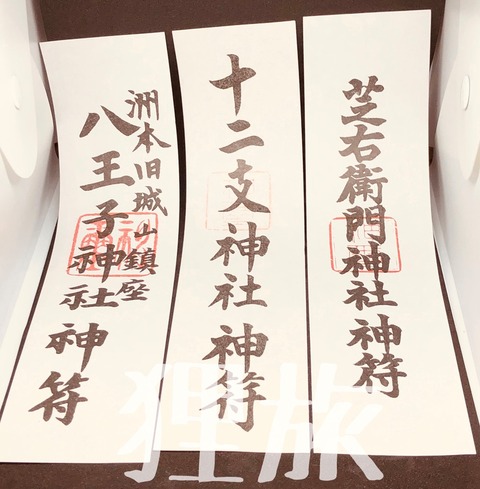 芝右衛門神社神符
十二支神社神符
洲本旧城山鎮座
八王子神社神符
狸旅